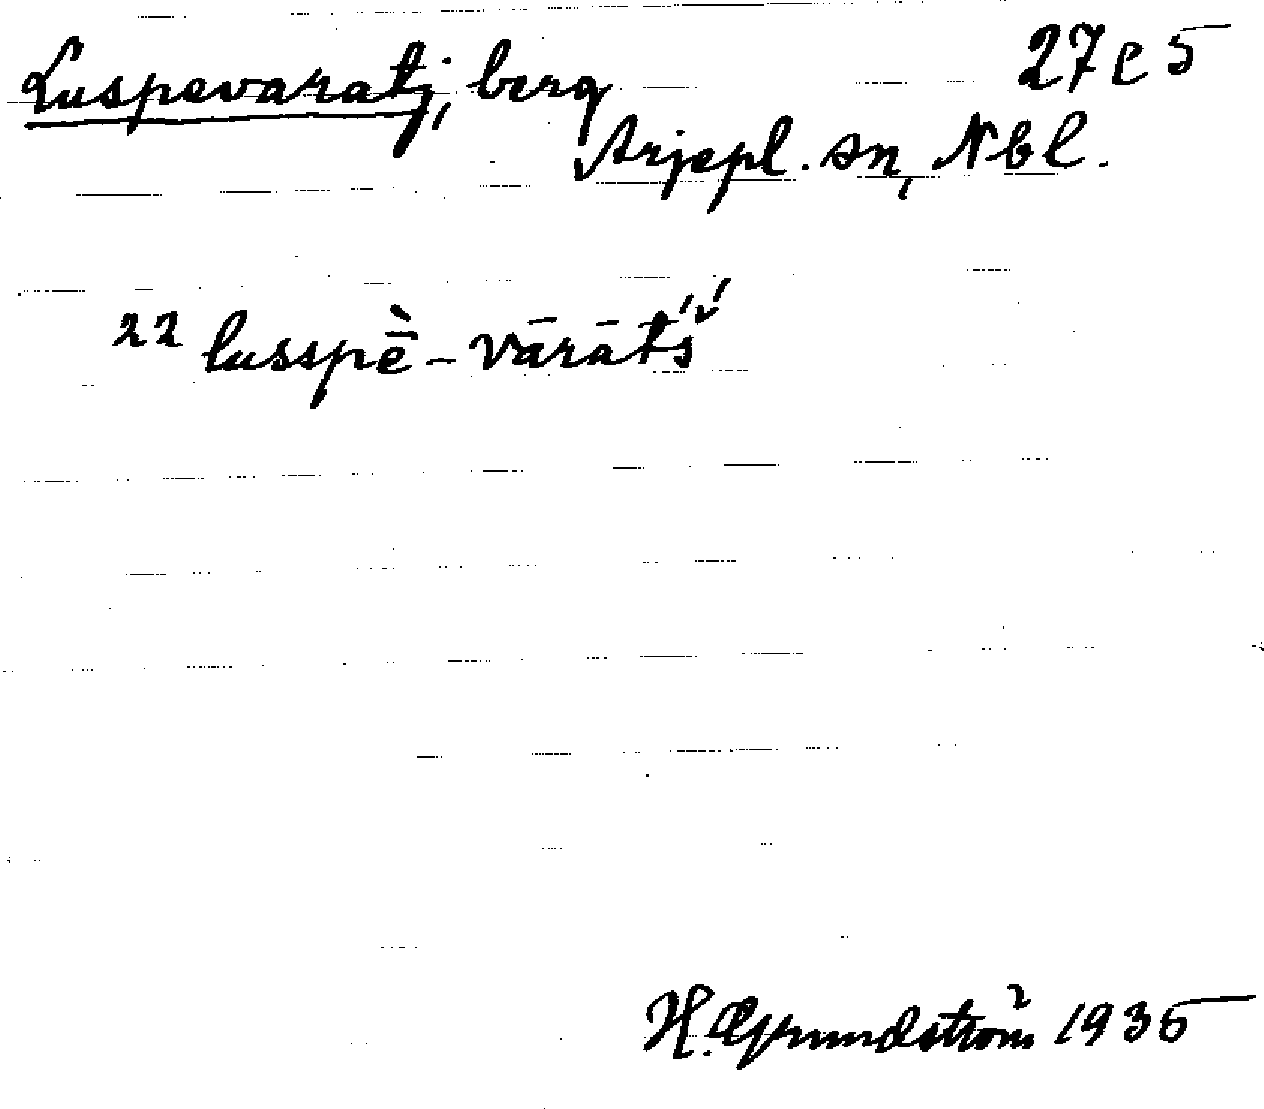 Luspevaratj, berg 27 e 5
Arjepl. sn, Nbl.
22 lusspḕ-vārāt́š́
H. Grundström 1935